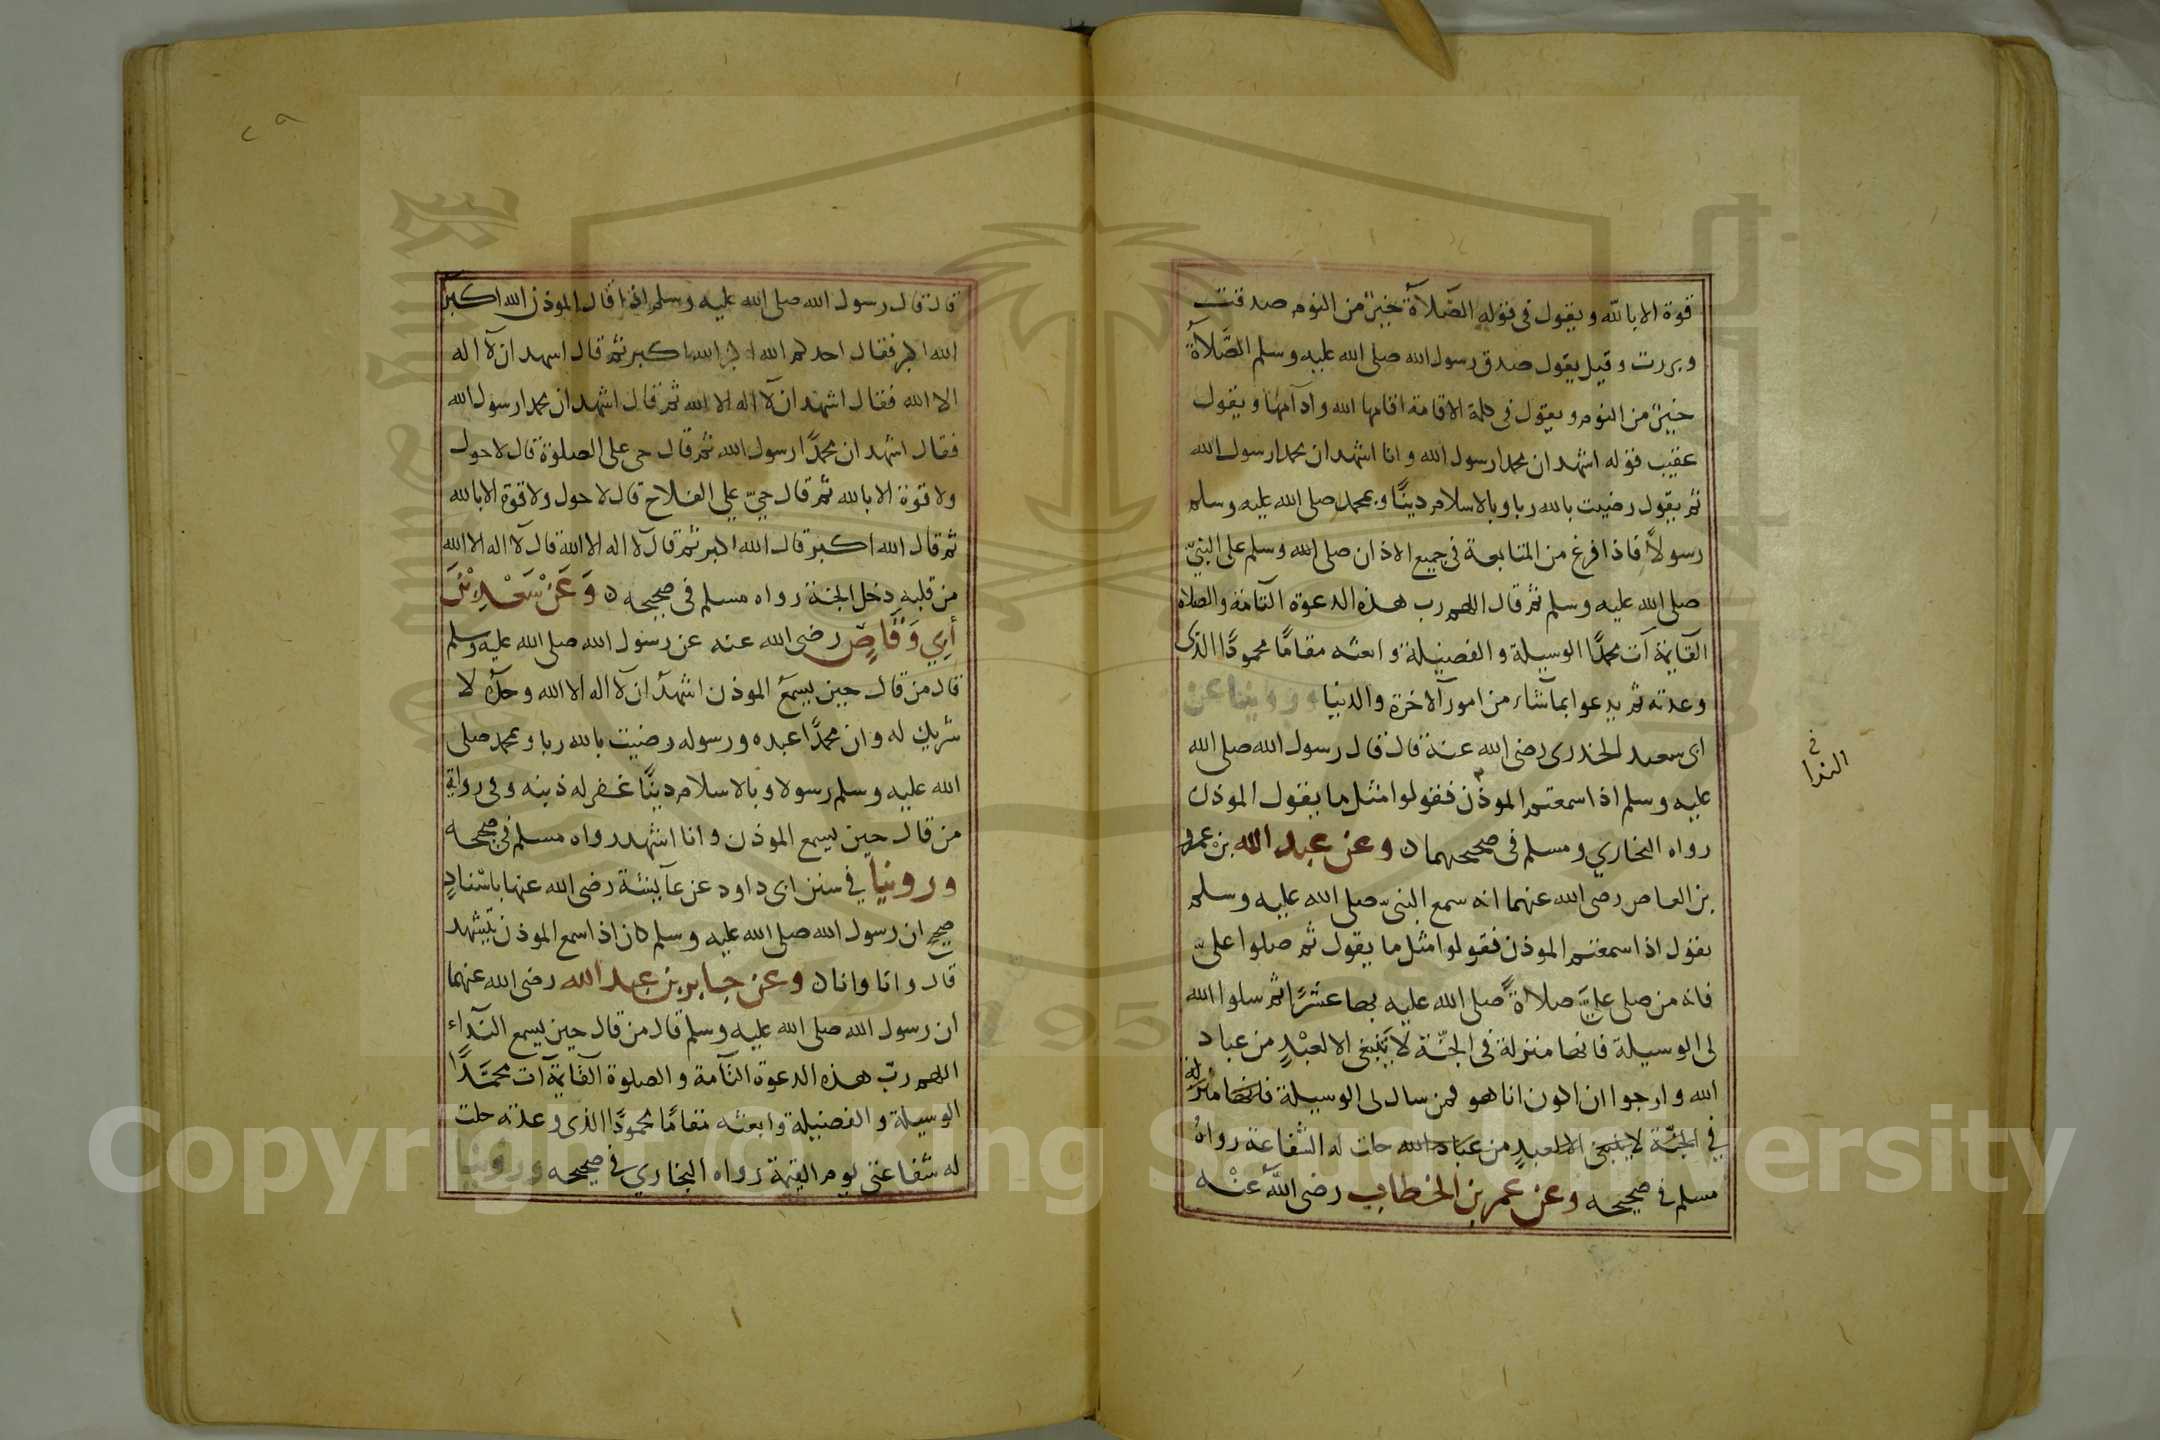 قوة الا بالله ويقول في قوله الصَّلاَةُ خيرٌ من النوم صدقت
وبررت وقيل يقول صدق رسول الله صلى الله عليه وسلم الصَّلاَةُ
خيرٌ من النوم ويقول في كلمة الاقامة اقامها الله وادآمها ويقول
عقيب قوله اشهد ان محمدا رسول الله وانا اشهد ان محمدا رسول الله
ثم يقول رضيت بالله ربا وبالاسلام دينًا وبمحمد صلى الله عليه وسلم
رسولاً فاذا فرغ من المتابعة في جميع الاذان صلى الله وسلم على النبيّ
صلى الله عليه وسلم ثم قال اللهم رب هذه الدعوة التآمة والصلاة
القآيمة آت محمدًا الوسيلة والفضيلة وابعثه مقامًا محمودًا الذى
وعدته ثم يدعوا بماشآء من امور الآخرة والدنيا وروينا عن
ابى سعيد الخدرى رضى الله عنه قال قال رسول الله صلى الله
عليه وسلم اذا سمعتم الموذن فقولوا مثل ما يقول الموذن
رواه البخاري ومسلم في صحيحهما ن وعن عبد الله بن عمرو
بن العاص رضى الله عنهما انه سمع النبيّ صلى الله عليه وسلم
يقول اذا سمعتم الموذن فقولوا مثل ما يقول ثم صلوا عليّ
فانه من صلى عليّ صلاةً صلى الله عليه بها عشرًا ثم سلوا الله
لى الوسيلة فانها منزلة فى الجنّة لا تنبغى الا لعبْدٍ من عباد
الله وارجوا ان اكون انا هو فمن سال لى الوسيلة فانها منزلة
في الجنّة لا ينبغى الا لعبدٍ من عباد الله حلت له الشفاعة رواهُ
مسلم في صحيحه وعن عمر بن الخطاب رضى اللّه عنْه
في
الندا
٢٩
قال قال رسول الله صلى الله عليه وسلم اذا قال الموذن الله اكبر
الله اكبر فقال احدكم الله اكبر الله اكبر ثم قال اشهد ان لآ اله
الا الله فقال اشهد ان لآ اله الا الله ثم قال اشهد ان محمدا رسول الله
فقال اشهد ان محمدًا رسول الله ثم قال حى على الصلوة قال لا حول
ولا قوة الا بالله ثم قال حيّ على الفلاح قال لا حول ولا قوة الا بالله
ثم قال الله اكبر قال الله اكبر ثم قال لآ اله الا الله قال لآ اله الا الله
من قلبه دخل الجنة رواه مسلم فى صحيحه ن وَعَنْ سَعْدِ بْنَ
أَبِي وَقَّاصٍ رضى الله عنه عن رسول الله صلى الله عليه وسلم
قال من قال حين يسمع الموذن اشهد ان لآ اله الا الله وحده لا
شريك له وان محمدًا عبده ورسوله رضيت بالله ربا وبمحمد صلى
الله عليه وسلم رسولا وبالاسلام دينًا غفر له ذنبه وفى رواية
من قال حين يسمع الموذن وانا اشهد رواه مسلم في صحيحه
وروينا في سنن ابى داود عن عآيشة رضى الله عنها باسْنادٍ
صحيحٍ ان رسول الله صلى الله عليه وسلم كان اذا سمع الموذن يتشهد
قال وانا وانا ن وعن جابر بن عبد الله رضى الله عنهما
ان رسول الله صلى الله عليه وسلم قال من قال حين يسمع الندآء
اللهم ربّ هذه الدعوة التآمة والصلوة القآيمة آت محمَّدًا
الوسيلة والفضيلة وابعثه مقامًا محمودًا الذى وعدته حلت
له شفاعتى يوم القيمة رواه البخاري في صحيحه وروينا
1957
Copyright © King Saud University